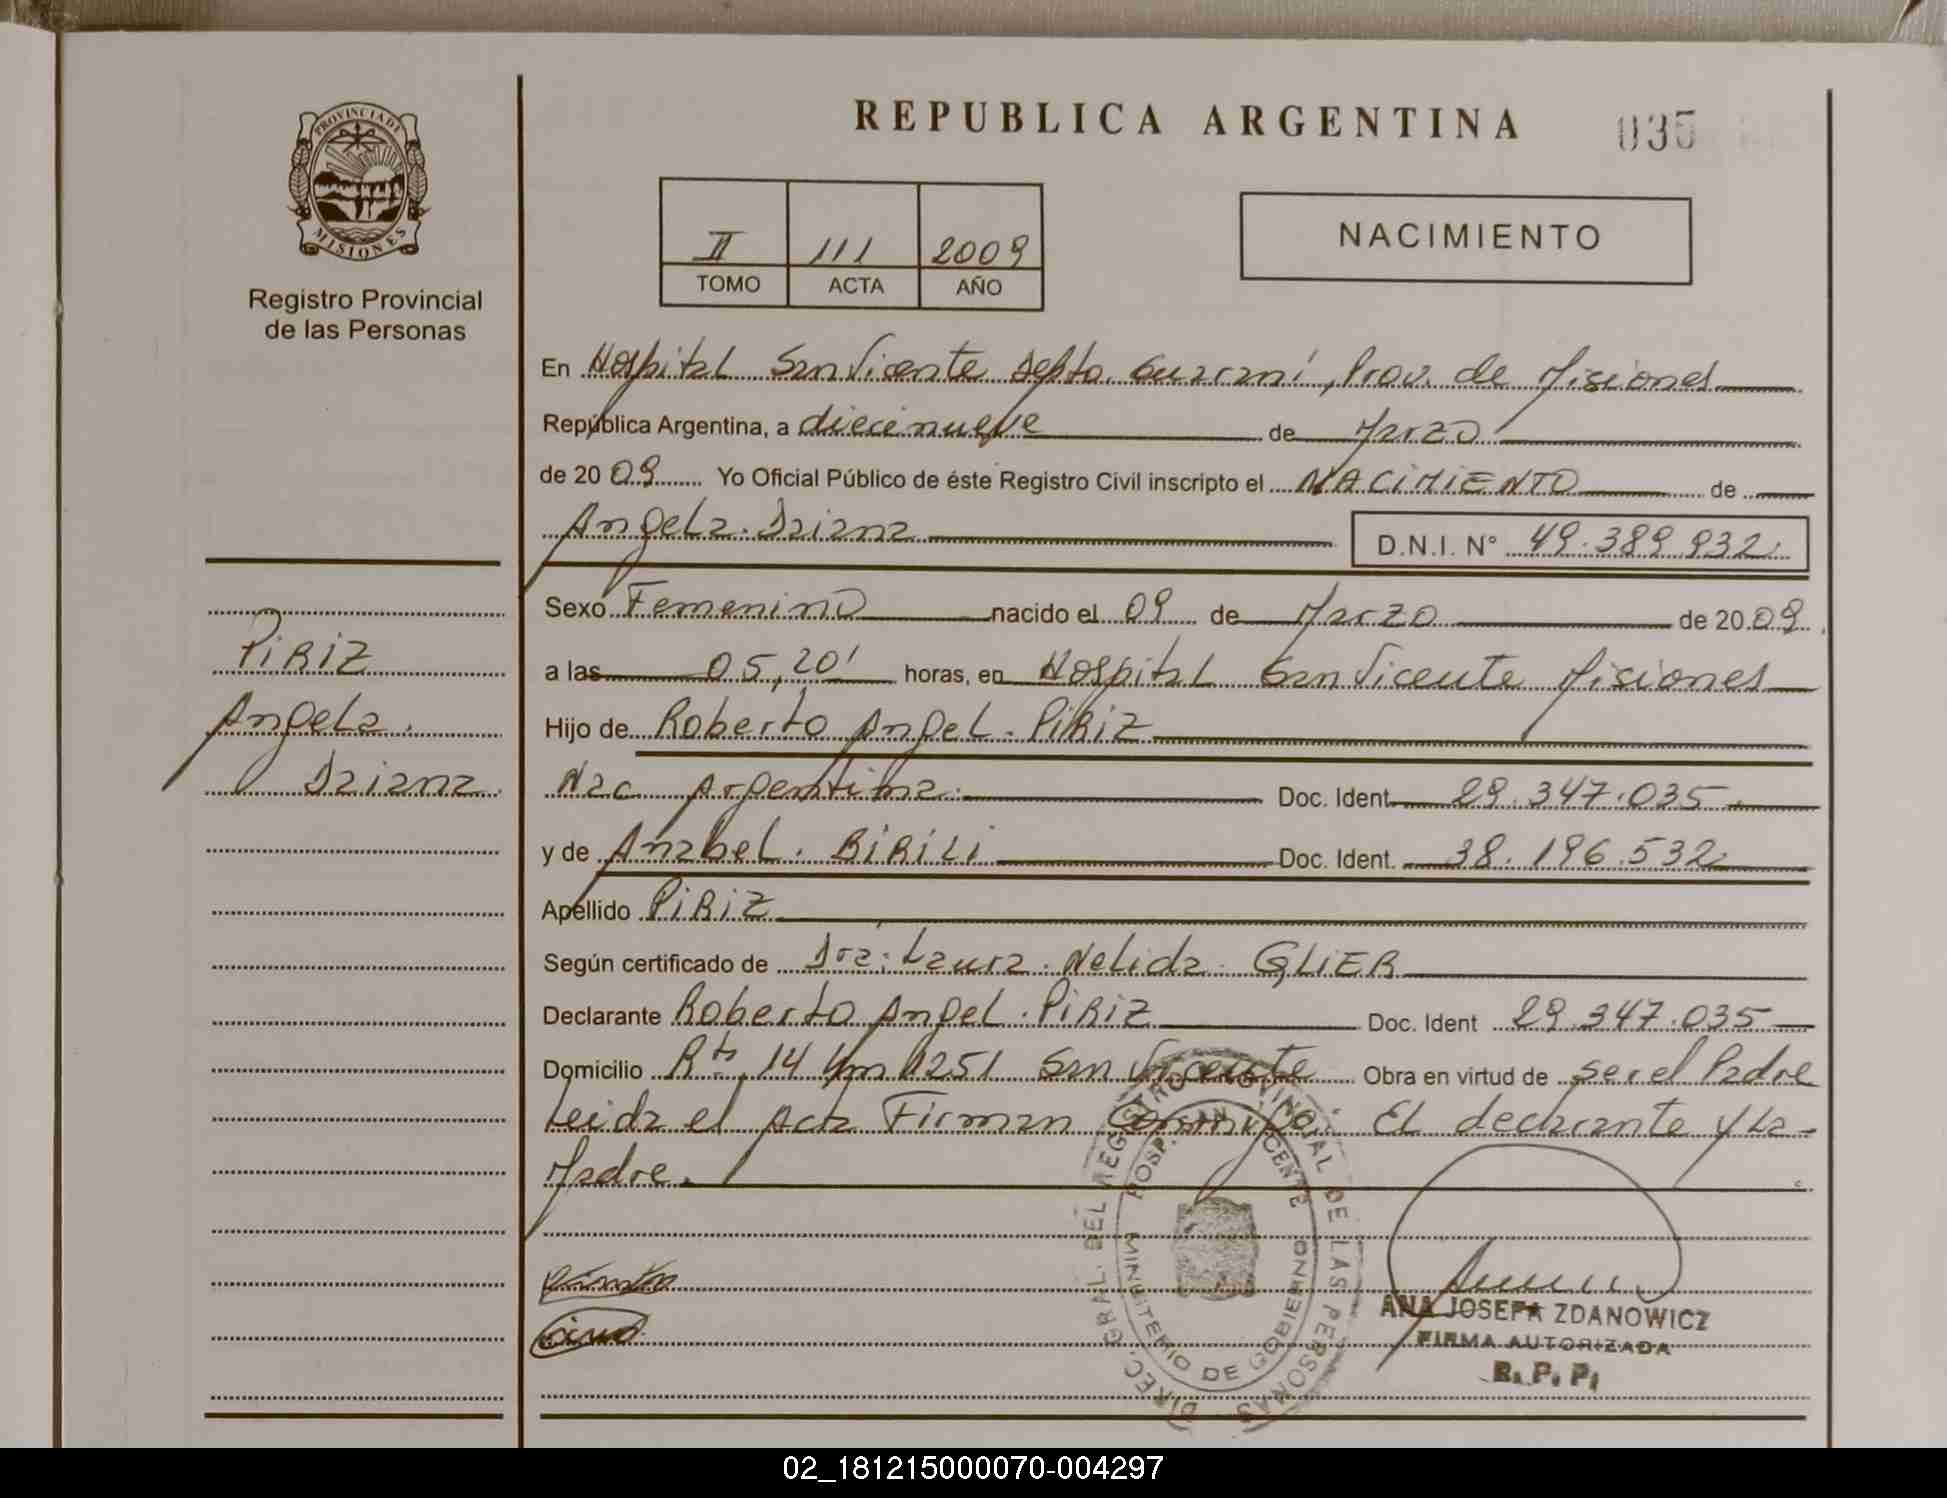 REPUBLICA ARGENTINA
035
PROVINCIA DE
MISIONES
Registro Provincial
de las Personas
II 111 2009
TOMO ACTA AÑO
NACIMIENTO
En Hospital San Vicente Depto. Guaraní, Prov. de Misiones
República Argentina, a diecinueve de Marzo
de 20 09 Yo Oficial Público de éste Registro Civil inscripto el NACIMIENTO de
Angela. Daiana D.N.I. N° 49.389.932.
Sexo Femenino nacido el 09 de Marzo de 20 09.
a las 05,20' horas, en Hospital San Vicente Misiones
Hijo de Roberto Angel. PIRIZ
Nac Argentina. Doc. Ident. 29.347.035.
y de Anabel. BIRILI Doc. Ident. 38.196.532
Apellido PIRIZ
Según certificado de Dra: Laura. Nelida. GLIER
Declarante Roberto Angel. PIRIZ Doc. Ident 29.347.035
Domicilio Rta. 14 Km 1251 San Vicente Obra en virtud de ser el Padre
Leida el Acta Firman Conmigo: El declarante y La
Madre.
PIRIZ
Angela.
Daiana.
DIREC. GRAL. DEL REGISTRO PROVINCIAL DE LAS PERSONAS
HOSP. SAN VICENTE
MINISTERIO DE GOBIERNO
ANA JOSEFA ZDANOWICZ
FIRMA AUTORIZADA
R. P. P.
02_181215000070-004297